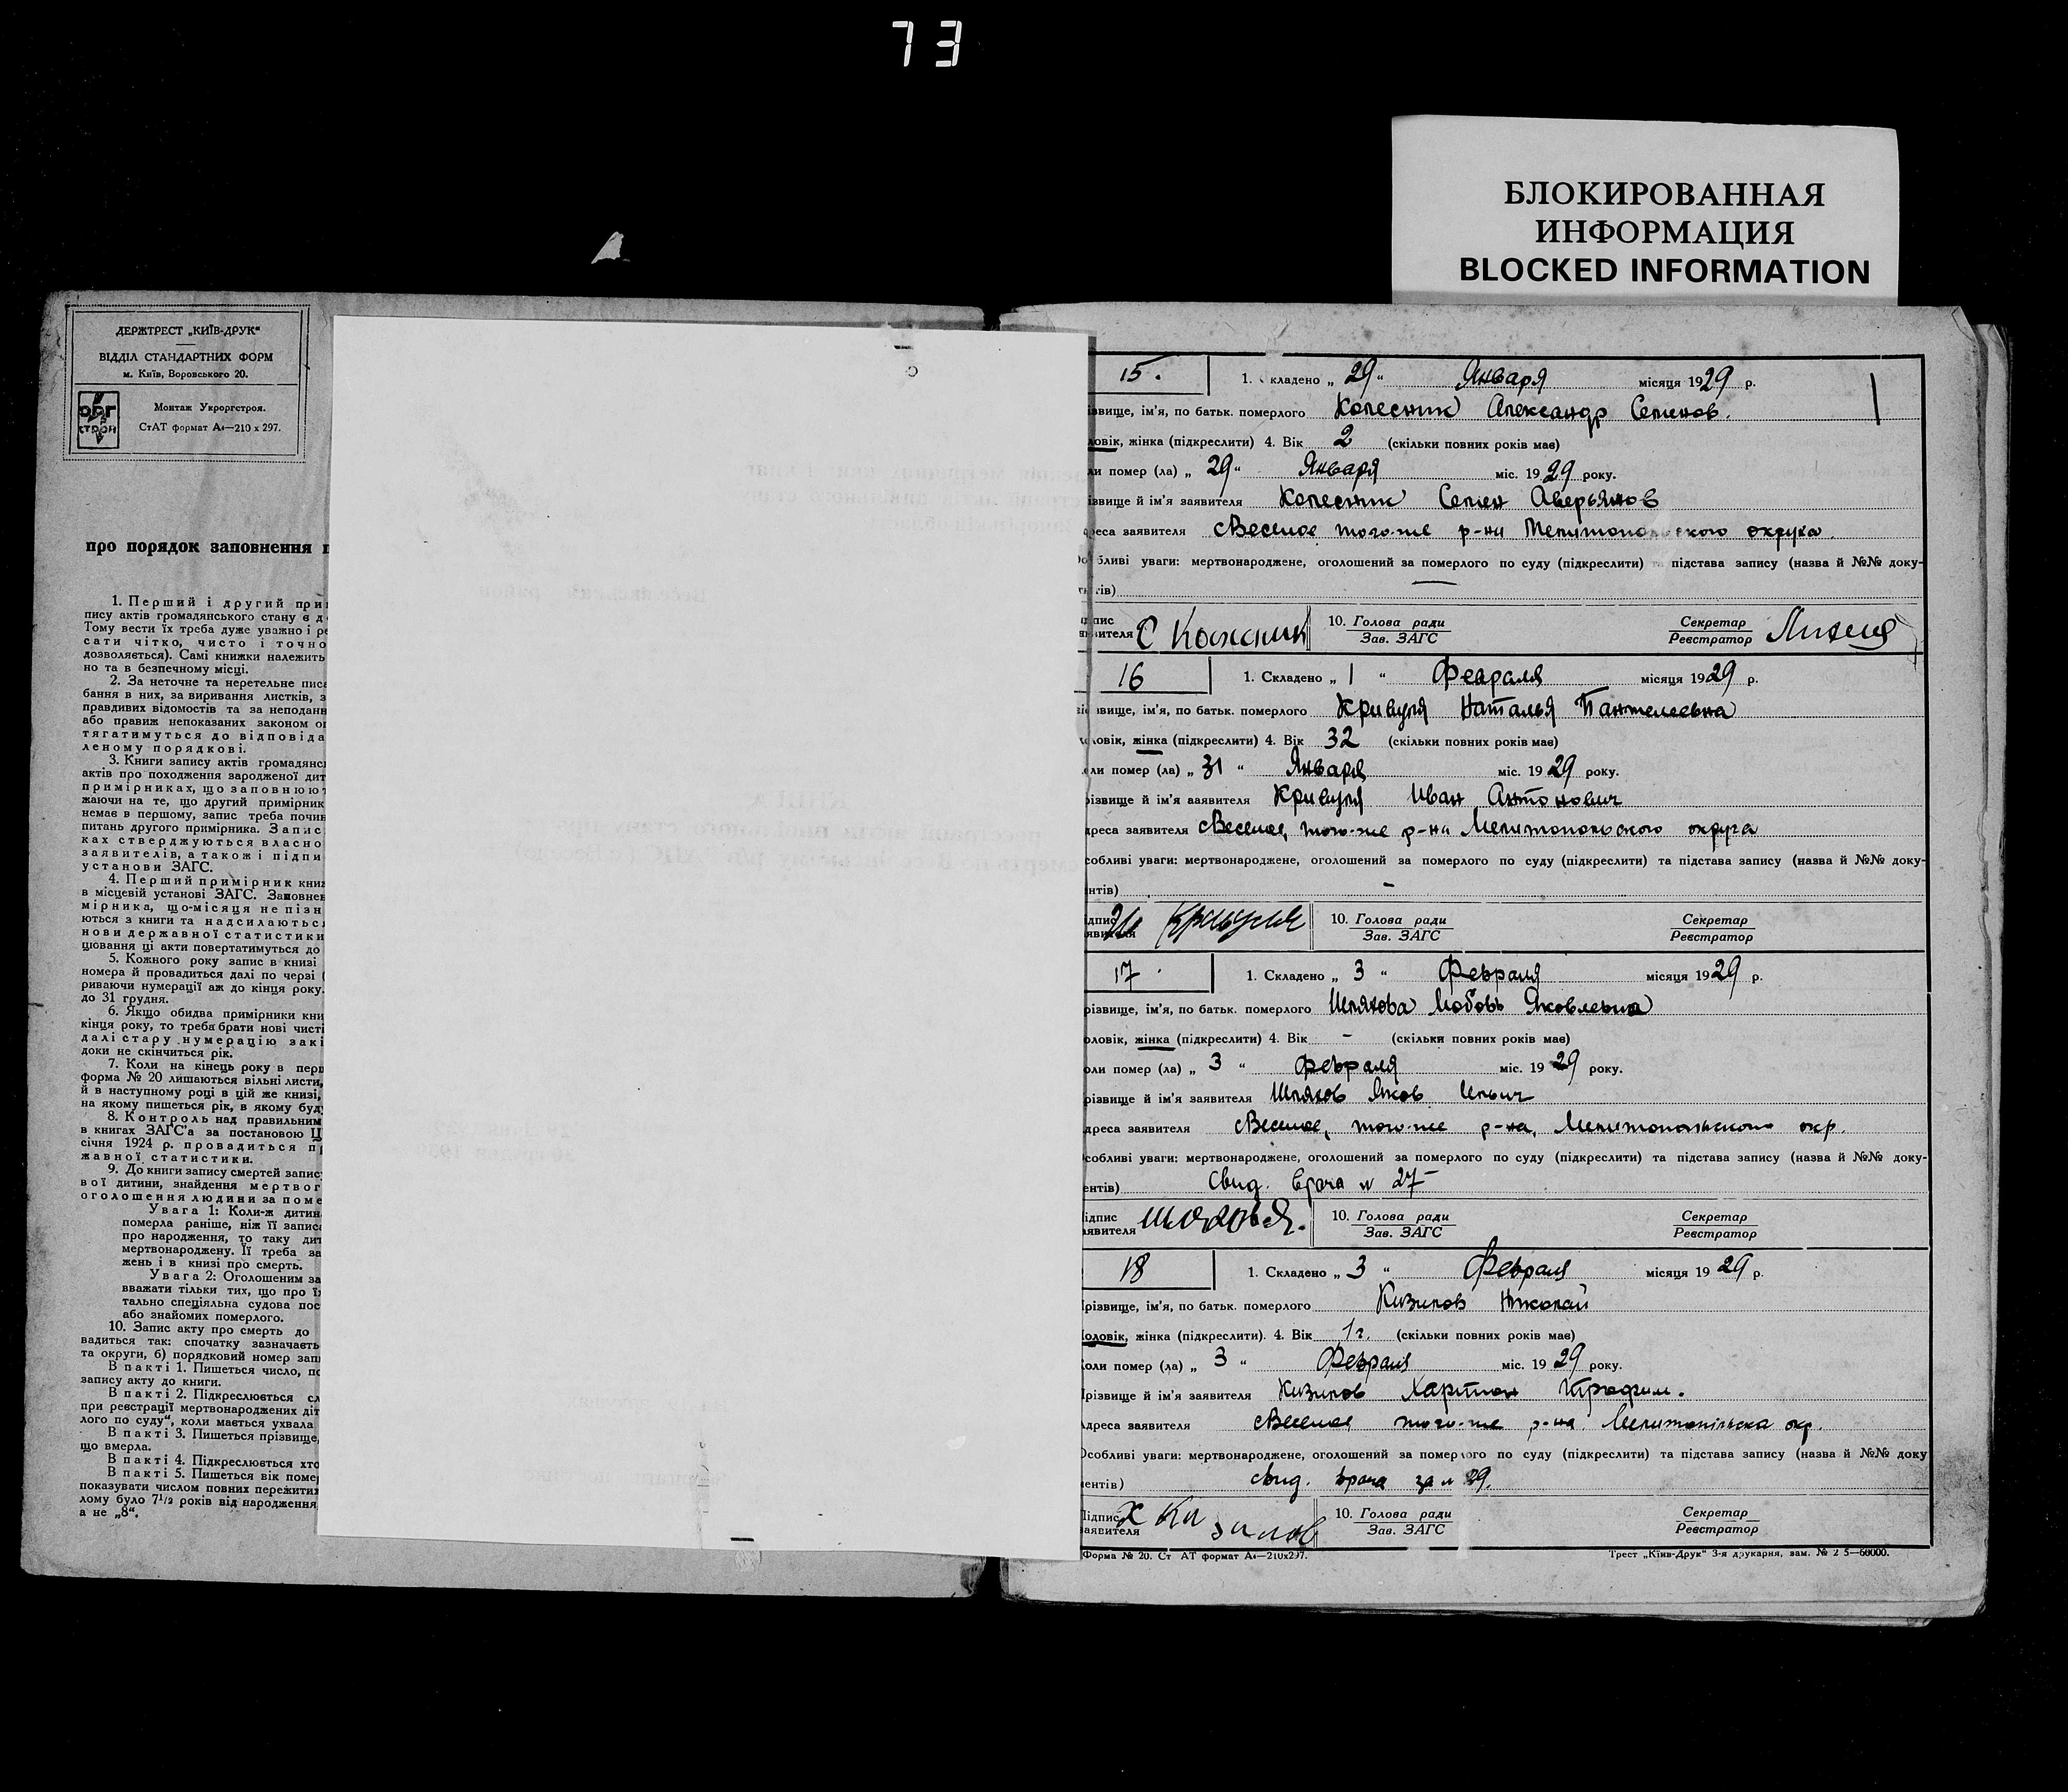 73
БЛОКИРОВАННАЯ
ИНФОРМАЦИЯ
BLOCKED INFORMATION
ДЕРЖТРЕСТ „КИЇВ-ДРУК“
ВІДДІЛ СТАНДАРТНИХ ФОРМ
м. Київ, Воровського 20.
ОРГ
СТРОЙ
Монтаж Укроргстроя.
СтАТ формат А₄—210 х 297.
про порядок заповнення п
1. Перший і другий при
пису актів громадянського стану є д
Тому вести їх треба дуже уважно і ре
сати чітко, чисто і точно
дозволяється). Самі книжки належить
но та в безпечному місці.
2. За неточне та неретельне писа
бання в них, за виривання листків, з
правдивих відомостів та за неподанн
або правиж непоказаних законом ог
тягатимуться до відповіда
леному порядкові.
3. Книги запису актів громадянсь
актів про походження зародженої дит
примірниках, що заповнюют
жаючи на те, що другий примірник
немає в першому, запис треба почин
питань другого примірника. Запис
ках стверджуються власно
заявителів, а також і підпи
установи ЗАГС.
4. Перший примірник книг
в місцевій установі ЗАГС. Заповнен
мірника, що-місяця не пізн
ються з книги та надсилаютьс
нови державної статистики
цювання ці акти повертатимуться до
5. Кожного року запис в книзі
номера й провадиться далі по черзі (
риваючи нумерації аж до кінця року.
до 31 грудня.
6. Якщо обидва примірники кни
кінця року, то треба брати нові чисті
далі стару нумерацію закі
доки не скінчиться рік.
7. Коли на кінець року в перш
форма № 20 лишаються вільні листи,
й в наступному році в цій же книзі,
на якому пишеться рік, в якому буд
8. Контроль над правильним
в книгах ЗАГС'а за постановою Ц
січня 1924 р. провадиться пр
жавної статистики.
9. До книги запису смертей запис
вої дитини, знайдення мертвог
оголошення людини за поме
Увага 1: Коли-ж дитин
померла раніше, ніж її запис
про народження, то таку дит
мертвонароджену. Її треба за
жень і в книзі про смерть.
Увага 2: Оголошеним за
вважати тільки тих, що про їх
тально спеціяльна судова пос
або знайомих померлого.
10. Запис акту про смерть до
вадиться так: спочатку зазначаєть
та округи, б) порядковий номер запи
В пакті 1. Пишеться число, по
запису акту до книги.
В пакті 2. Підкреслюється сл
при реєстрації мертвонароджених діт
лого по суду“, коли мається ухвала
В пакті 3. Пишеться прізвище,
що вмерла.
В пакті 4. Підкреслюється хто
В пакті 5. Пишеться вік помер
показувати числом повних пережитих
лому було 7½ років від народження,
а не „8“.
15. 1. Складено „ 29 “ Января місяця 1929 р.
ізвище, ім'я, по батьк. померлого Колесник Александр Семенов.
ловік, жінка (підкреслити) 4. Вік 2 (скільки повних років має)
ли помер (ла) „ 29 “ Января міс. 1929 року.
ізвище й ім'я заявителя Колесник Семен Аверьянов
реса заявителя с Веселое того-же р-на Мелитопольского округа.
обливі уваги: мертвонароджене, оголошений за померлого по суду (підкреслити) та підстава запису (назва й №№ доку-
тів)
пис
явителя
10. Голова ради
Зав. ЗАГС
Секретар
Реєстратор
16 1. Складено „ 1 “ Февраля місяця 1929 р.
звище, ім'я, по батьк. померлого Кривуля Наталья Пантелеевна
ловік, жінка (підкреслити) 4. Вік 32 (скільки повних років має)
оли помер (ла) „ 31 “ Января міс. 1929 року.
різвище й ім'я заявителя Кривуля Иван Антонович
дреса заявителя с Веселое, того-же р-на Мелитопольского округа
собливі уваги: мертвонароджене, оголошений за померлого по суду (підкреслити) та підстава запису (назва й №№ доку-
нтів) –
ідпис
аявителя Кривуля
10. Голова ради
Зав. ЗАГС
Секретар
Реєстратор
17 1. Складено „ 3 “ Февраля місяця 1929 р.
різвище, ім'я, по батьк. померлого Шляхова Любовь Яковлевна
оловік, жінка (підкреслити) 4. Вік – (скільки повних років має)
оли помер (ла) „ 3 “ февраля міс. 1929 року.
різвище й ім'я заявителя Шляхов Яков Ильич
дреса заявителя с Веселое, того-же р-на, Мелитопольского окр.
собливі уваги: мертвонароджене, оголошений за померлого по суду (підкреслити) та підстава запису (назва й №№ доку-
ентів) Свид. врача № 27
ідпис
аявителя
10. Голова ради
Зав. ЗАГС
Секретар
Реєстратор
18 1. Складено „ 3 “ Февраля місяця 1929 р.
Прізвище, ім'я, по батьк. померлого Кизилов Николай
Чоловік, жінка (підкреслити). 4. Вік 1 г. (скільки повних років має)
Коли помер (ла) „ 3 “ Февраля міс. 1929 року.
Прізвище й ім'я заявителя Кизилов Харитон Трофим.
Адреса заявителя с Веселое того-же р-на Мелитопільска окр.
Особливі уваги: мертвонароджене, оголошений за померлого по суду (підкреслити) та підстава запису (назва й №№ доку
ентів) свид. врача за № 29.
Підпис
заявителя Х Кизилов
10. Голова ради
Зав. ЗАГС
Секретар
Реєстратор
Форма № 20. Ст АТ формат А₄—210х297.
Трест „Київ-Друк“ 3-я друкарня, зам. № 2 5—60000.